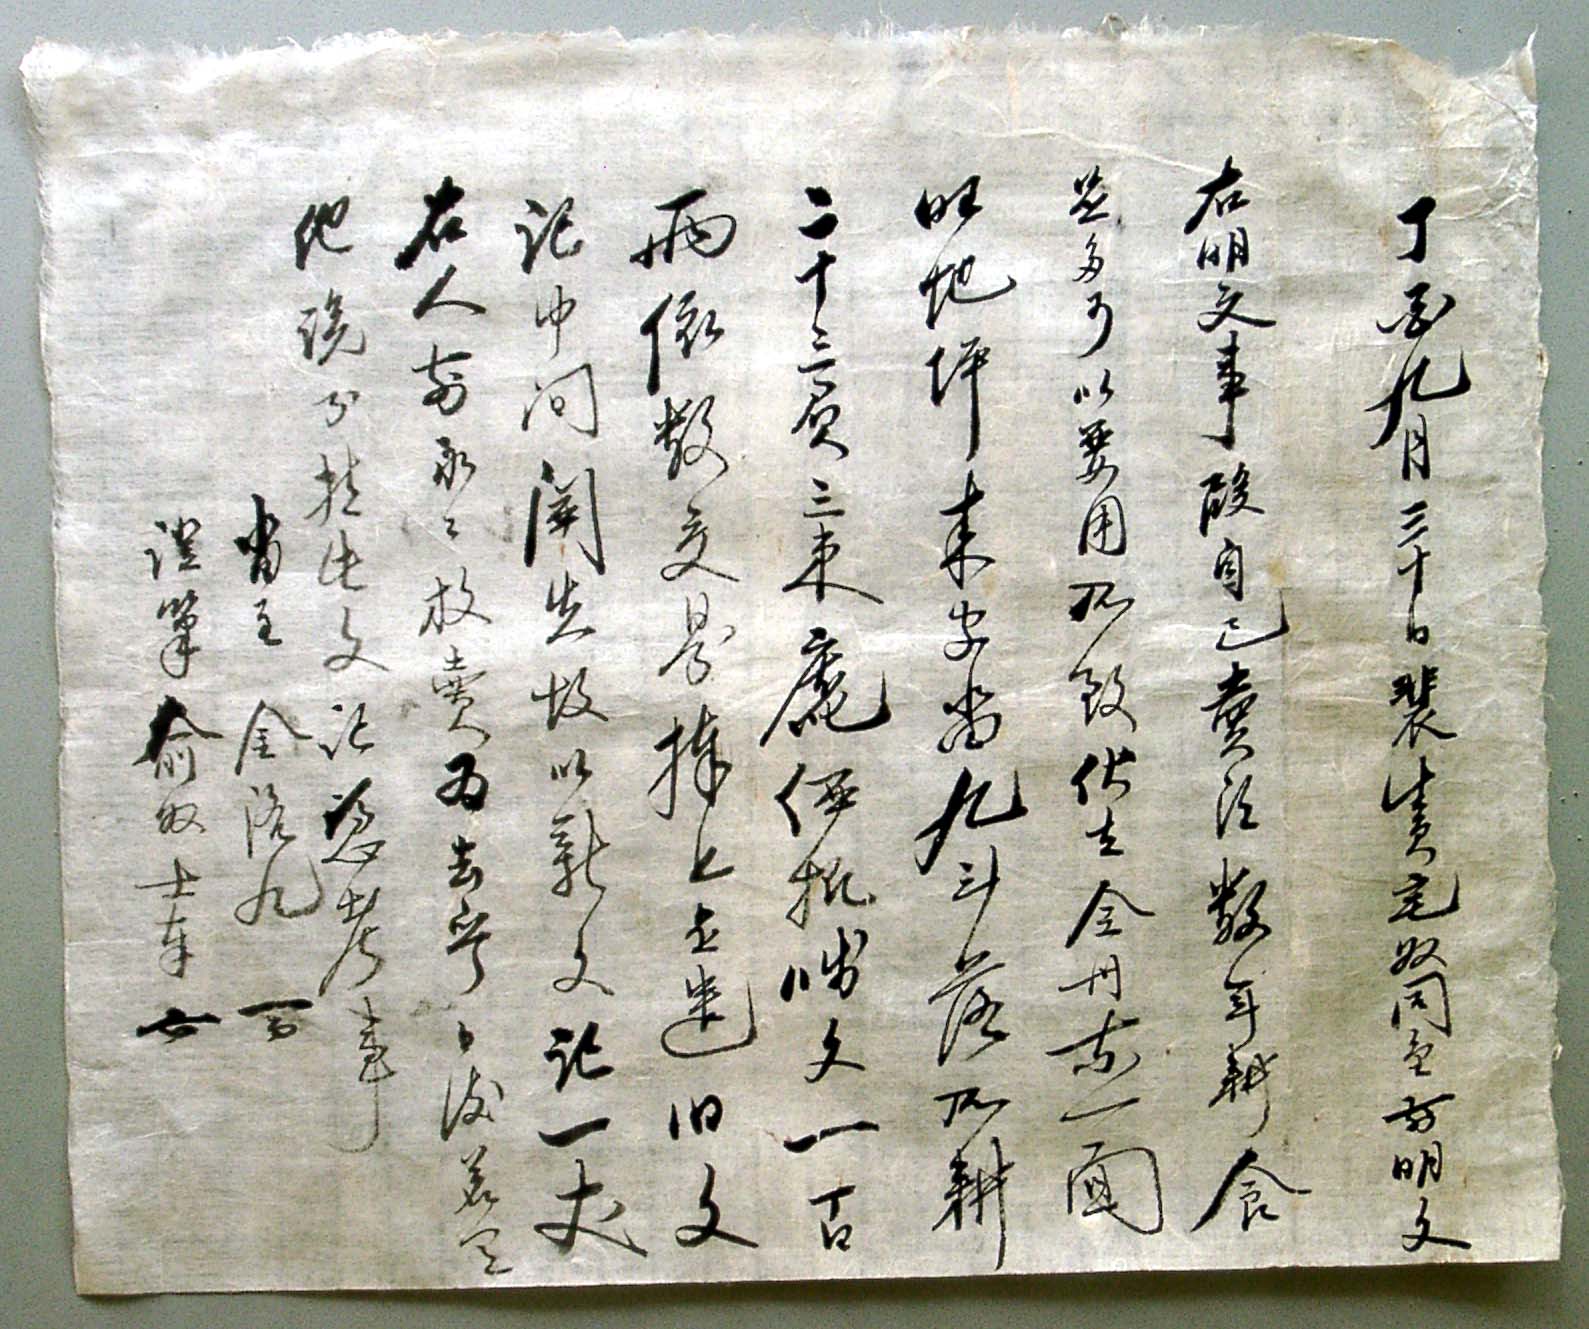 丁酉九月三十日裴生員宅奴同金前明文
右明文事段自己賣得數年耕食
是多可以要用所致伏在金丹赤一面
旺地坪来字畓九斗落所耕
二十三負三束庫價折錢文一百
兩依數交易捧上是遣旧文
記中間闊失故以新文記一丈
右人前永永放賣爲去乎日後若有
他說則持此文記憑考事
畓主 金浴九
證筆 俞奴士奉